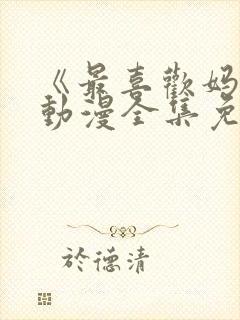 《最喜歡媽
動漫全集免
於德清